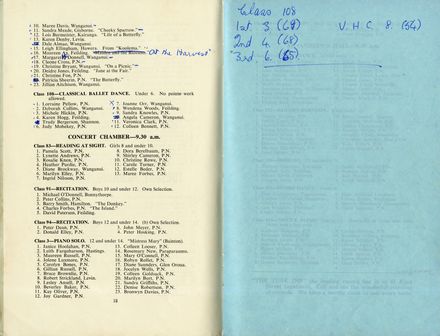 10. Maree Davis, Wanganui.
11. Sandra Meade, Gisborne. "Cheeky Sparrow."
12. Lois Burmeister, Kairanga. "Life of a Butterfly."
13. Karen Denby, Levin.
14. Dale Almao, Wanganui.
15. Leigh Ellingham, Hawera. From "Koolema."
16. Maureen Feilding. "At the Harvest"
17. Margaret O'Donnell, Wanganui.
18. Cheree Crons, P.N.
19. Christine Bryant, Wanganui. "On a Picnic."
20. Deidre Jones, Feilding. "June at the Fair."
21. Christine Fon, P.N.
22. Patricia Shearer, P.N. "The Butterfly."
23. Jillian Aitchison, Wanganui.
Class 108—CLASSICAL BALLET DANCE. Under 6. No pointe work allowed.
1. Lorraine Pellow, P.N.
2. Deborah Collins, Wanganui.
3. Michele Hicklin, P.N.
4. Karen Hogg, Feilding.
5. Trudy Bergersen, Shannon.
6. Judy Mohekey, P.N.
7. Joanne Orr, Wanganui.
8. Wendena Woods, Feilding.
9. Sandra Knowles, P.N.
10. Angela Cameron, Wanganui.
11. Veronica Clark, P.N.
12. Colleen Bennett, P.N.
CONCERT CHAMBER—9.30 a.m.
Class 83—READING AT SIGHT. Girls 8 and under 10.
1. Pamela Scott, P.N.
2. Lynette Andrews, P.N.
3. Rosalie Knox, P.N.
4. Heather Purdie, P.N.
5. Diane Brockway, Wanganui.
6. Marilyn Elley, P.N.
7. Ingrid Nilsson, P.N.
8. Dora Berelbaum, P.N.
9. Shirley Cameron, P.N.
10. Christine Rowe, P.N.
11. Carole Turner, P.N.
12. Estelle Boder, P.N.
13. Maree Forbes, P.N.
Class 91—RECITATION. Boys 10 and under 12. Own Selection.
1. Michael O'Donnell, Bonnythorpe.
2. Peter Collins, P.N.
3. Barry Smith, Hamilton. "The Donkey."
4. Charles Forbes, P.N. "The Island."
5. David Petersen, Feilding.
Class 94—RECITATION. Boys 12 and under 14. (b) Own Selection.
1. Peter Dean, P.N.
2. Donald Elley, P.N.
3. John Meyer, P.N.
4. Peter Hosking, P.N.
Class 3—PIANO SOLO. 12 and under 14. "Mistress Mary" (Bainton).
1. Janice Hoolahan, P.N.
2. Laith Farquharson, Hastings.
3. Maureen Russell, P.N.
4. Jolene Laussen, P.N.
5. Carolyn Bones, P.N.
6. Gillian Russell, P.N.
7. Bruce Brownlie, P.N.
8. Robert Strickland, Levin.
9. Lesley Ansell, P.N.
10. Beverley Baker, P.N.
11. Kay Oliver, P.N.
12. Joy Gardner, P.N.
13. Colleen Looser, P.N.
14. Rosemary New, Paraparaumu.
15. Mary O'Connell, P.N.
16. Robyn Rolls, P.N.
17. Diane Saunders, Glen Oroua.
18. Jocelyn Wells, P.N.
19. Colleen Galdduck, P.N.
20. Marilyn Bort, P.N.
21. Sandra Griffiths, P.N.
22. Denise Robertson, P.N.
23. Bronwyn Davies, P.N.
18
Class 108
1st 3 (69) V.H.C. 8. (54)
2nd 4. (68)
3rd 6. (65)